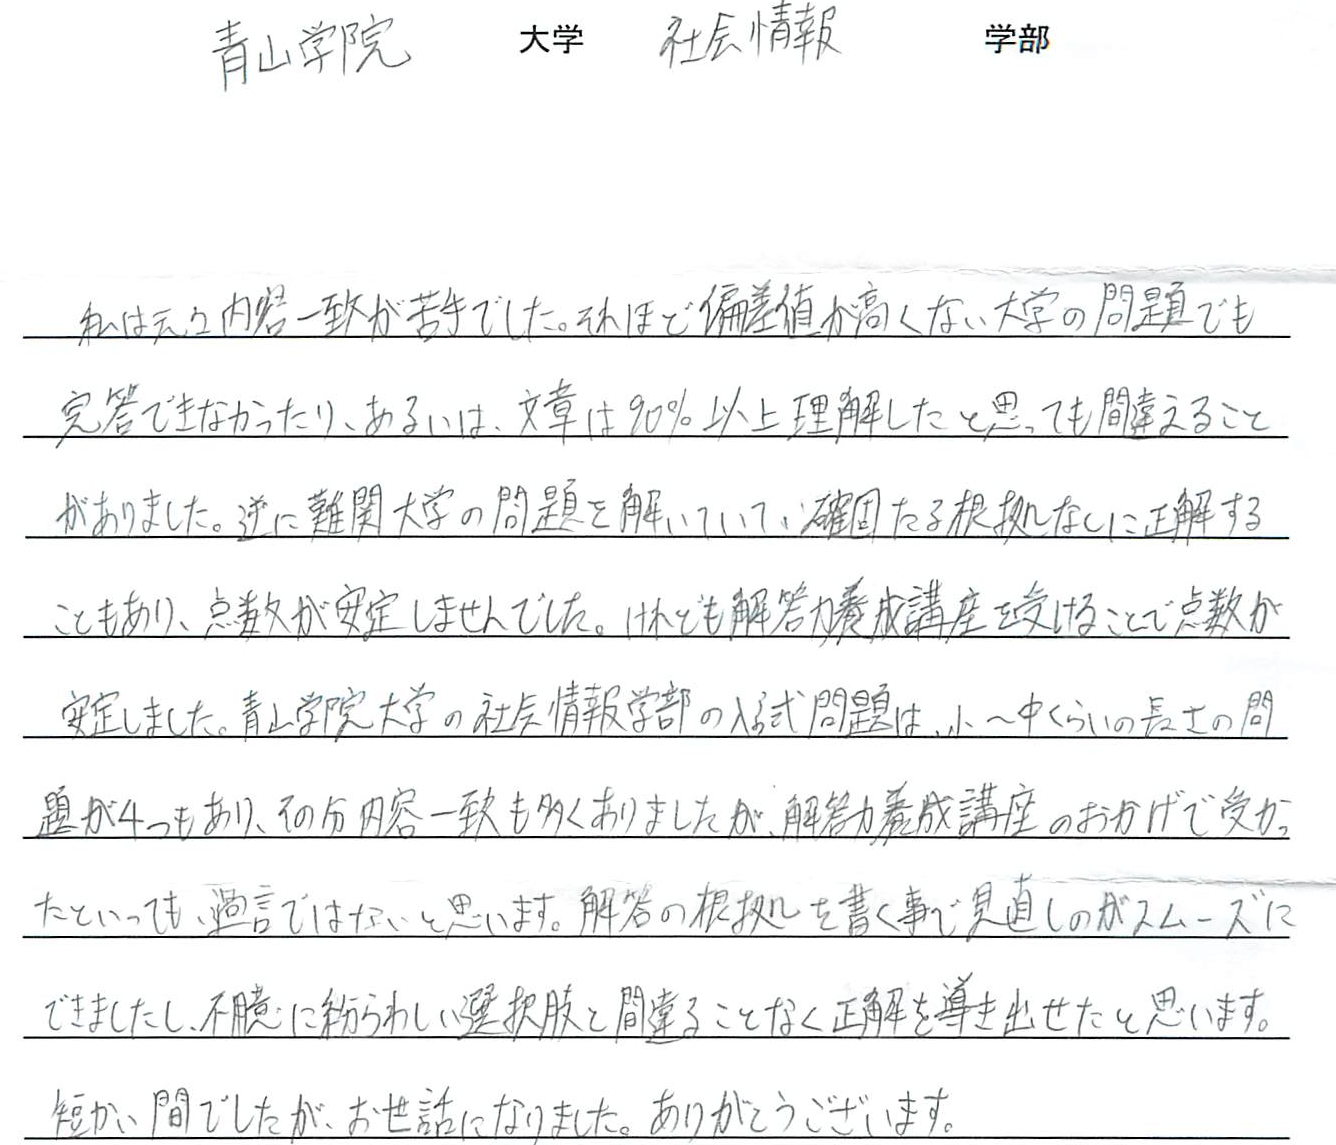 青山学院 大学 社会情報 学部
私は元々内容一致が苦手でした。それほど偏差値が高くない大学の問題でも
完答できなかったり、あるいは、文章は90%以上理解したと思っても間違えること
がありました。逆に難関大学の問題を解いていて、確固たる根拠なしに正解する
こともあり、点数が安定しませんでした。けれども解答力養成講座を受けることで点数が
安定しました。青山学院大学の社会情報学部の入試問題は、小〜中くらいの長さの問
題が4つもあり、その分内容一致も多くありましたが、解答力養成講座のおかげで受かっ
たといっても、過言ではないと思います。解答の根拠を書く事で見直しのがスムーズに
できましたし、不臆に紛らわしい選択肢と間違ることなく正解を導き出せたと思います。
短かい間でしたが、お世話になりました。ありがとうございます。